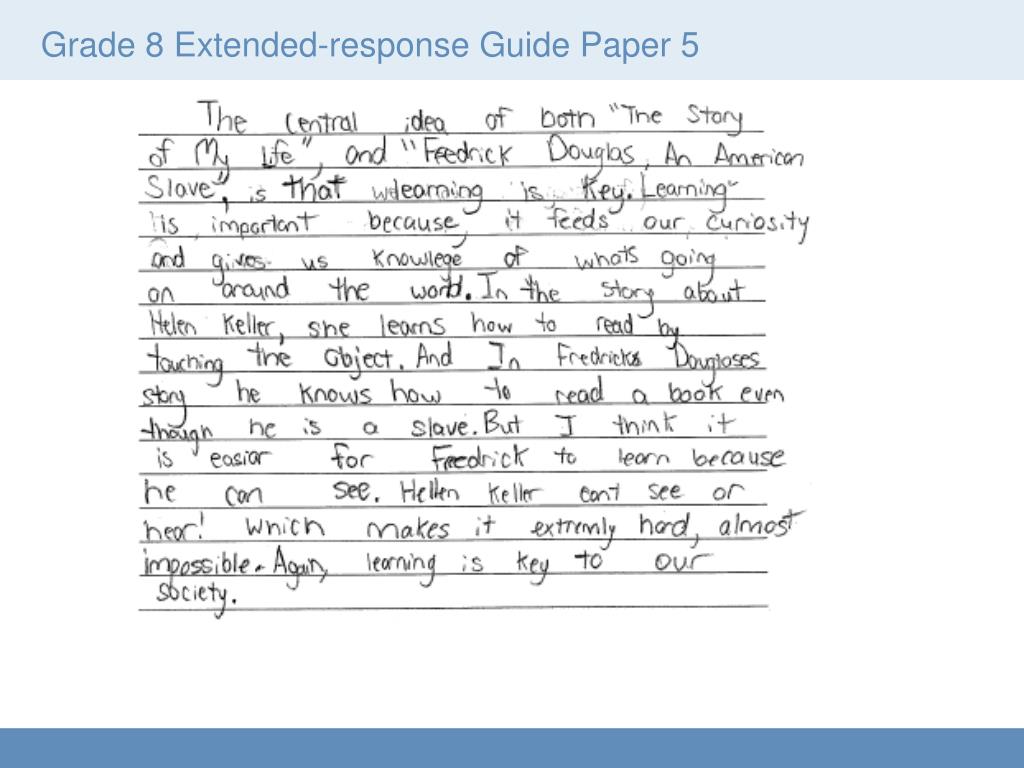 Grade 8 Extended-response Guide Paper 5
The central idea of both "The Story
of My Life", and "Feedrick Douglas, An American
Slave", is that learning is key. Learning
is important because, it feeds our curiosity
and gives us knowlege of whats going
on around the world. In the story about
Helen Keller, she learns how to read by
touching the object. And In Fredricks Douglases
story he knows how to read a book even
though he is a slave. But I think it
is easiar for Freedrick to learn because
he can see. Hellen Keller cant see or
hear! which makes it extremly hard, almost
impossible. Again, learning is key to our
society.